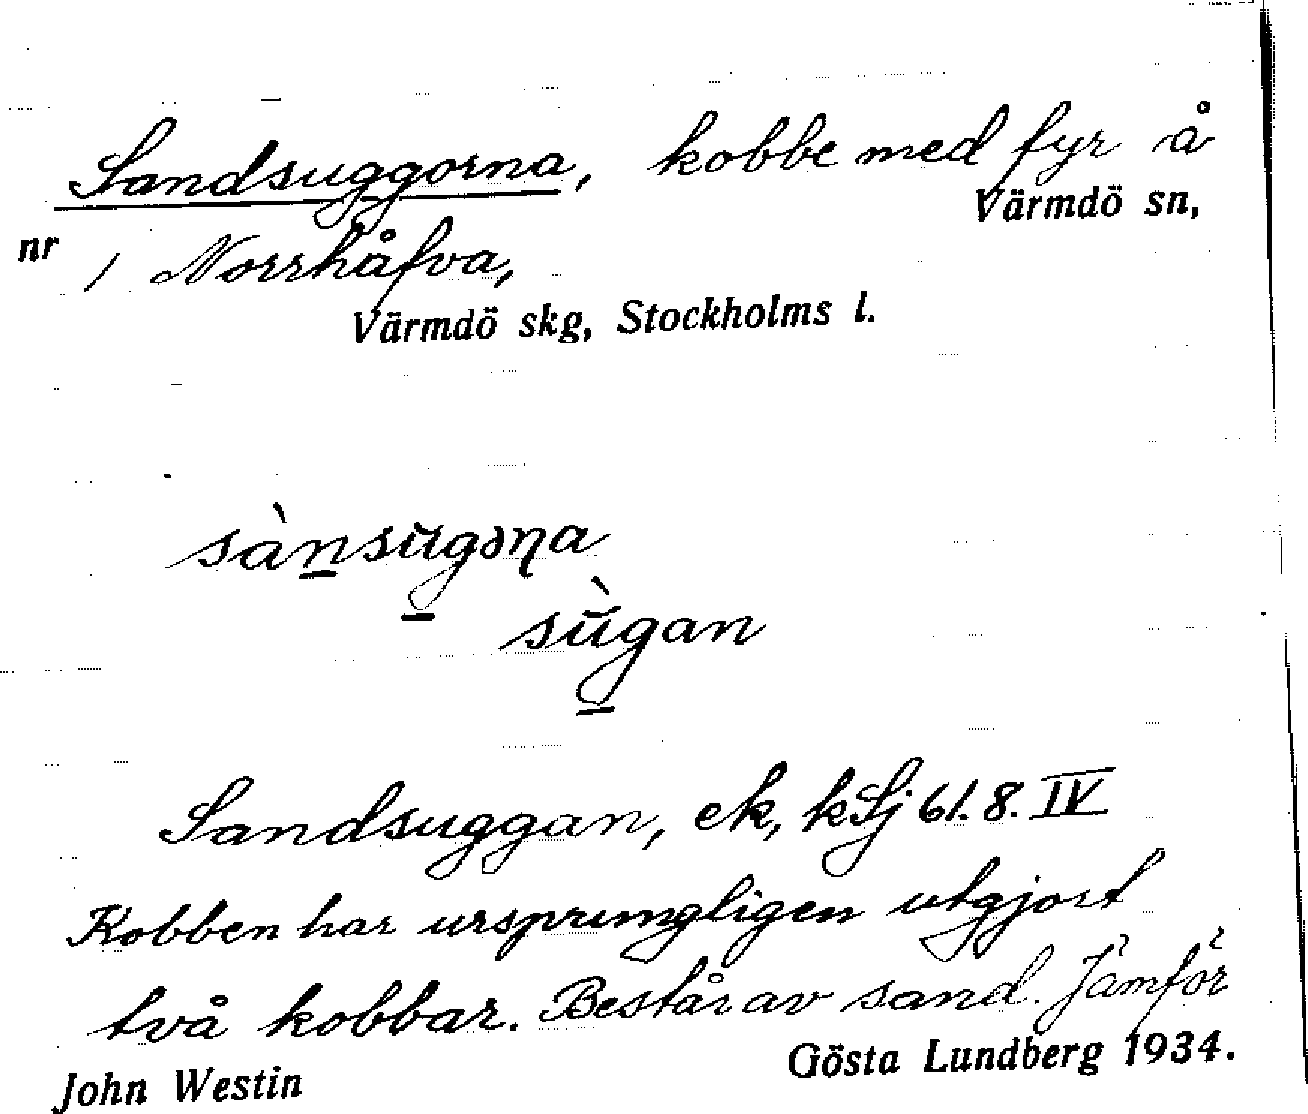 Sandsuggorna, kobbe med fyr å
Värmdö sn,
nr 1 Norrhåfva,
Värmdö skg, Stockholms l.
sàn̲sŭg̲əɳa
sŭ̀g̲an
Sandsuggan, ek, kSj 61.8.IV
Kobben har ursprungligen utgjort
två kobbar. Består av sand. Jämför
John Westin
Gösta Lundberg 1934.